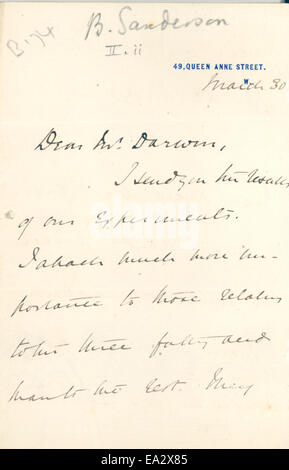 B 74
B. Sanderson
II. ii
49, QUEEN ANNE STREET.
W.
March 30
Dear Mr. Darwin,
I send you the results
of our Experiments.
I attach much more im-
portance to those relating
to the three fatty acids
than to the rest. They
alamy
alamy stock photo
EA2X85
www.alamy.com